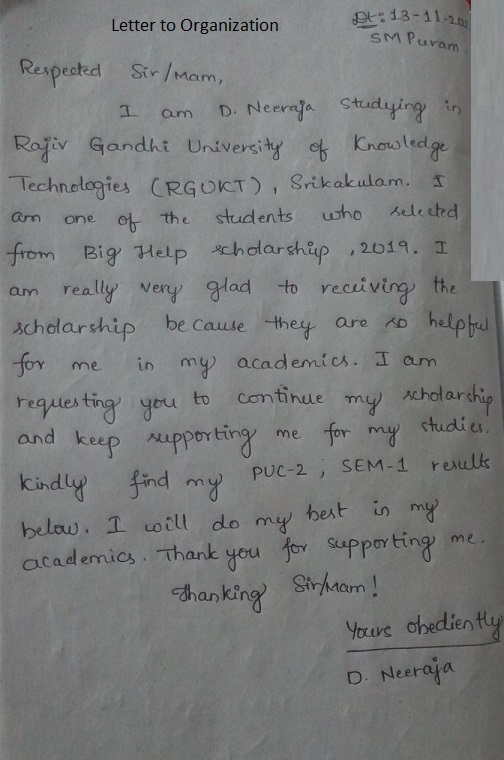 Letter to Organization
Dt: 13-11-202
SM Puram
Respected Sir/Mam,
I am D. Neeraja Studying in
Rajiv Gandhi University of Knowledge
Technologies (RGUKT), Srikakulam. I
am one of the students who selected
from Big Help scholarship, 2019. I
am really very glad to receiving the
scholarship because they are so helpful
for me in my academics. I am
requesting you to continue my scholarship
and keep supporting me for my studies.
Kindly find my PUC-2, SEM-1 results
below. I will do my best in my
academics. Thank you for supporting me.
Thanking Sir/Mam!
Yours obediently
D. Neeraja